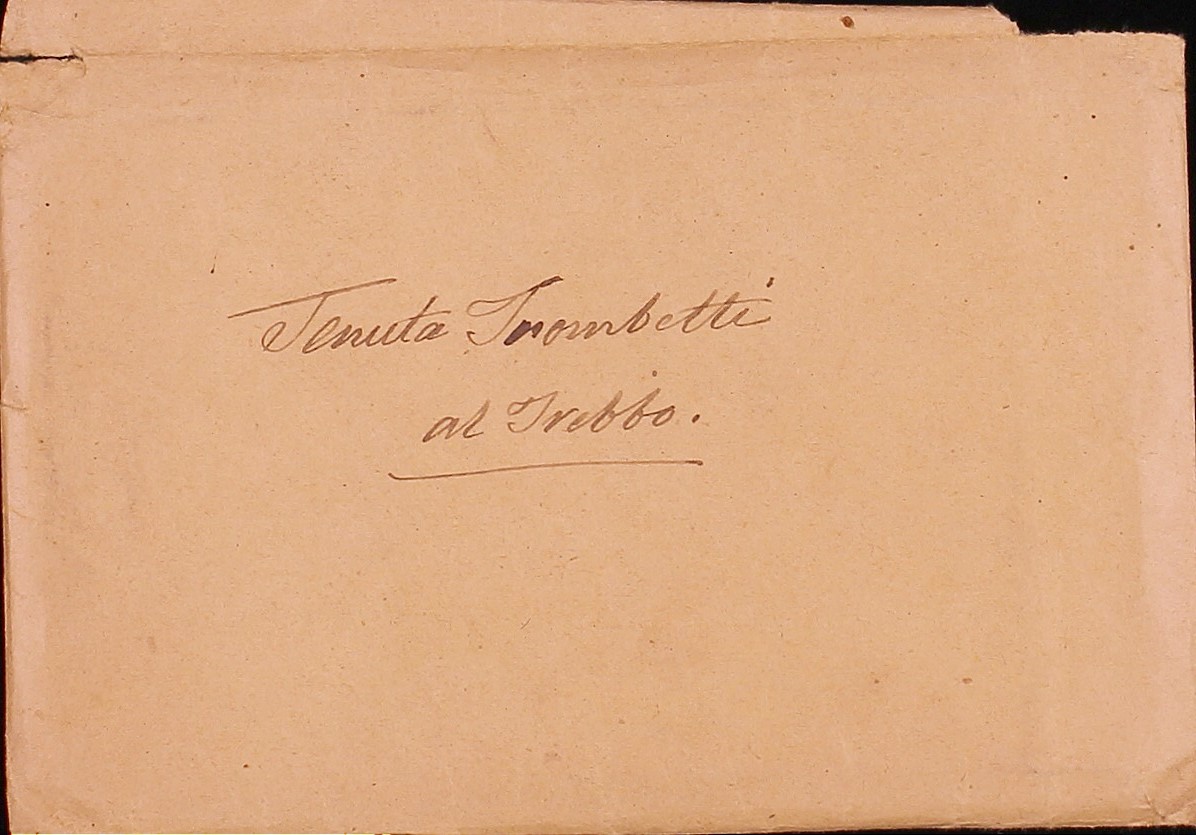 Tenuta Trombetti
al Trebbo.